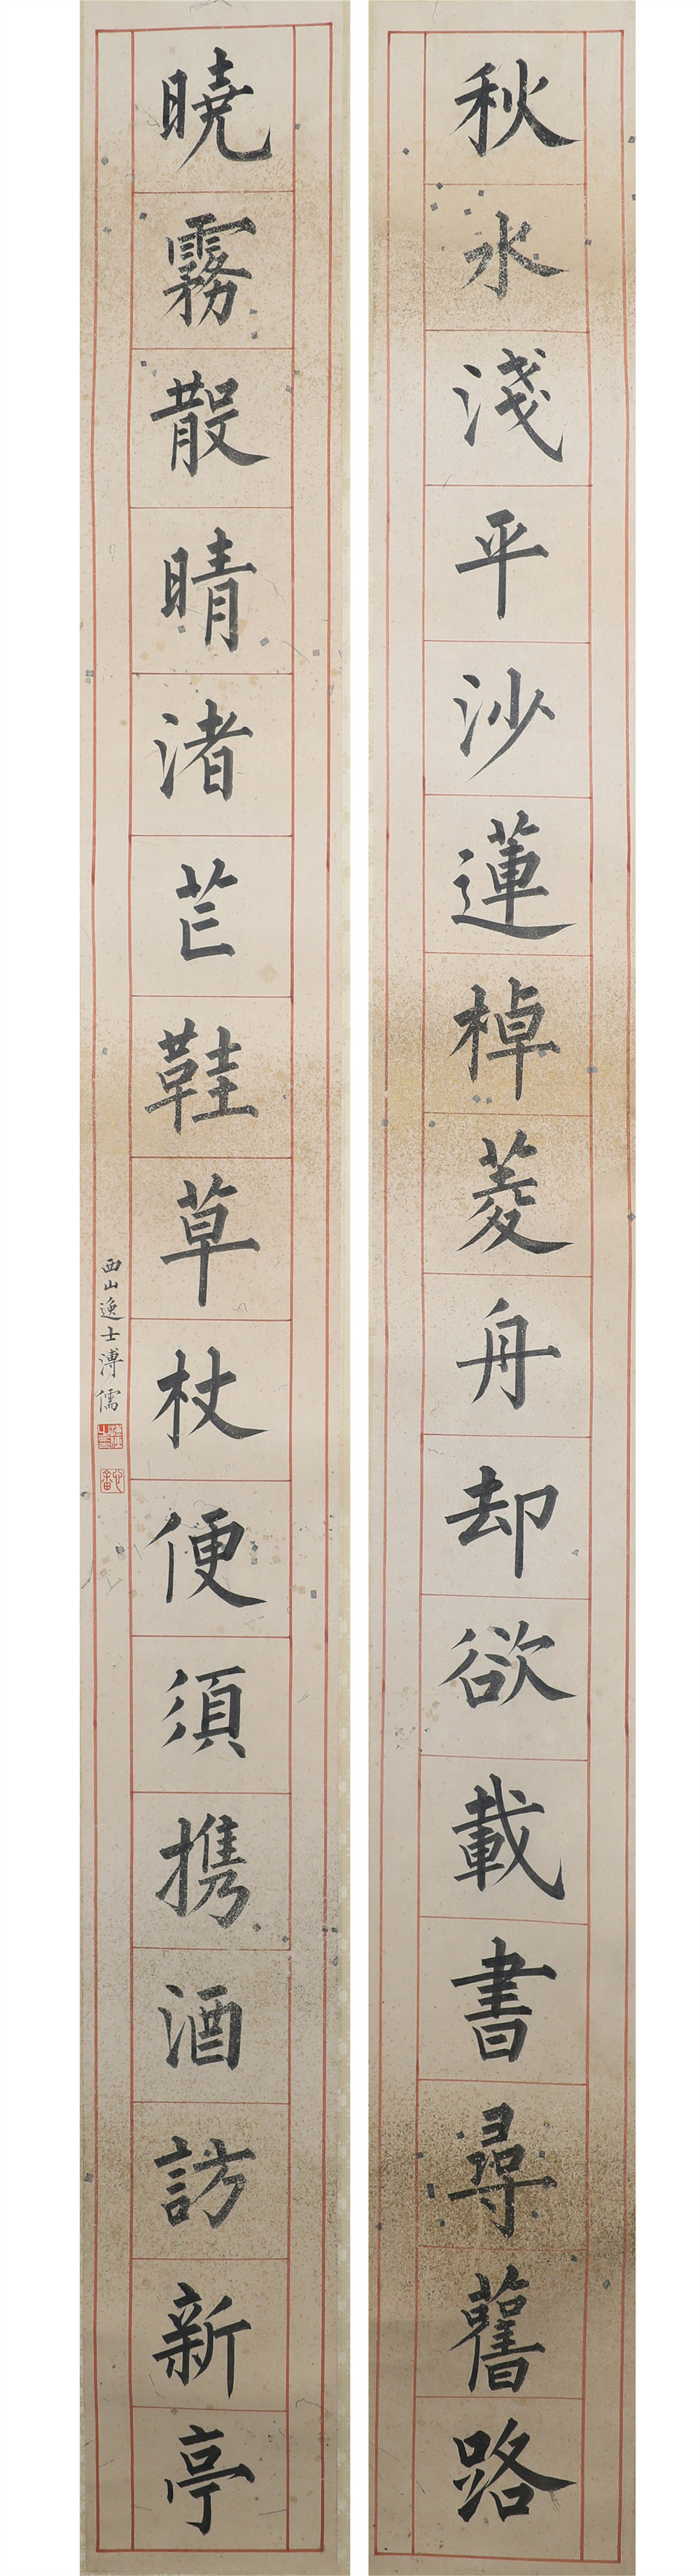 秋水淺平沙蓮棹菱舟却欲載書尋舊路
曉霧散晴渚芒鞵草杖便須携酒訪新亭
西山逸士溥儒